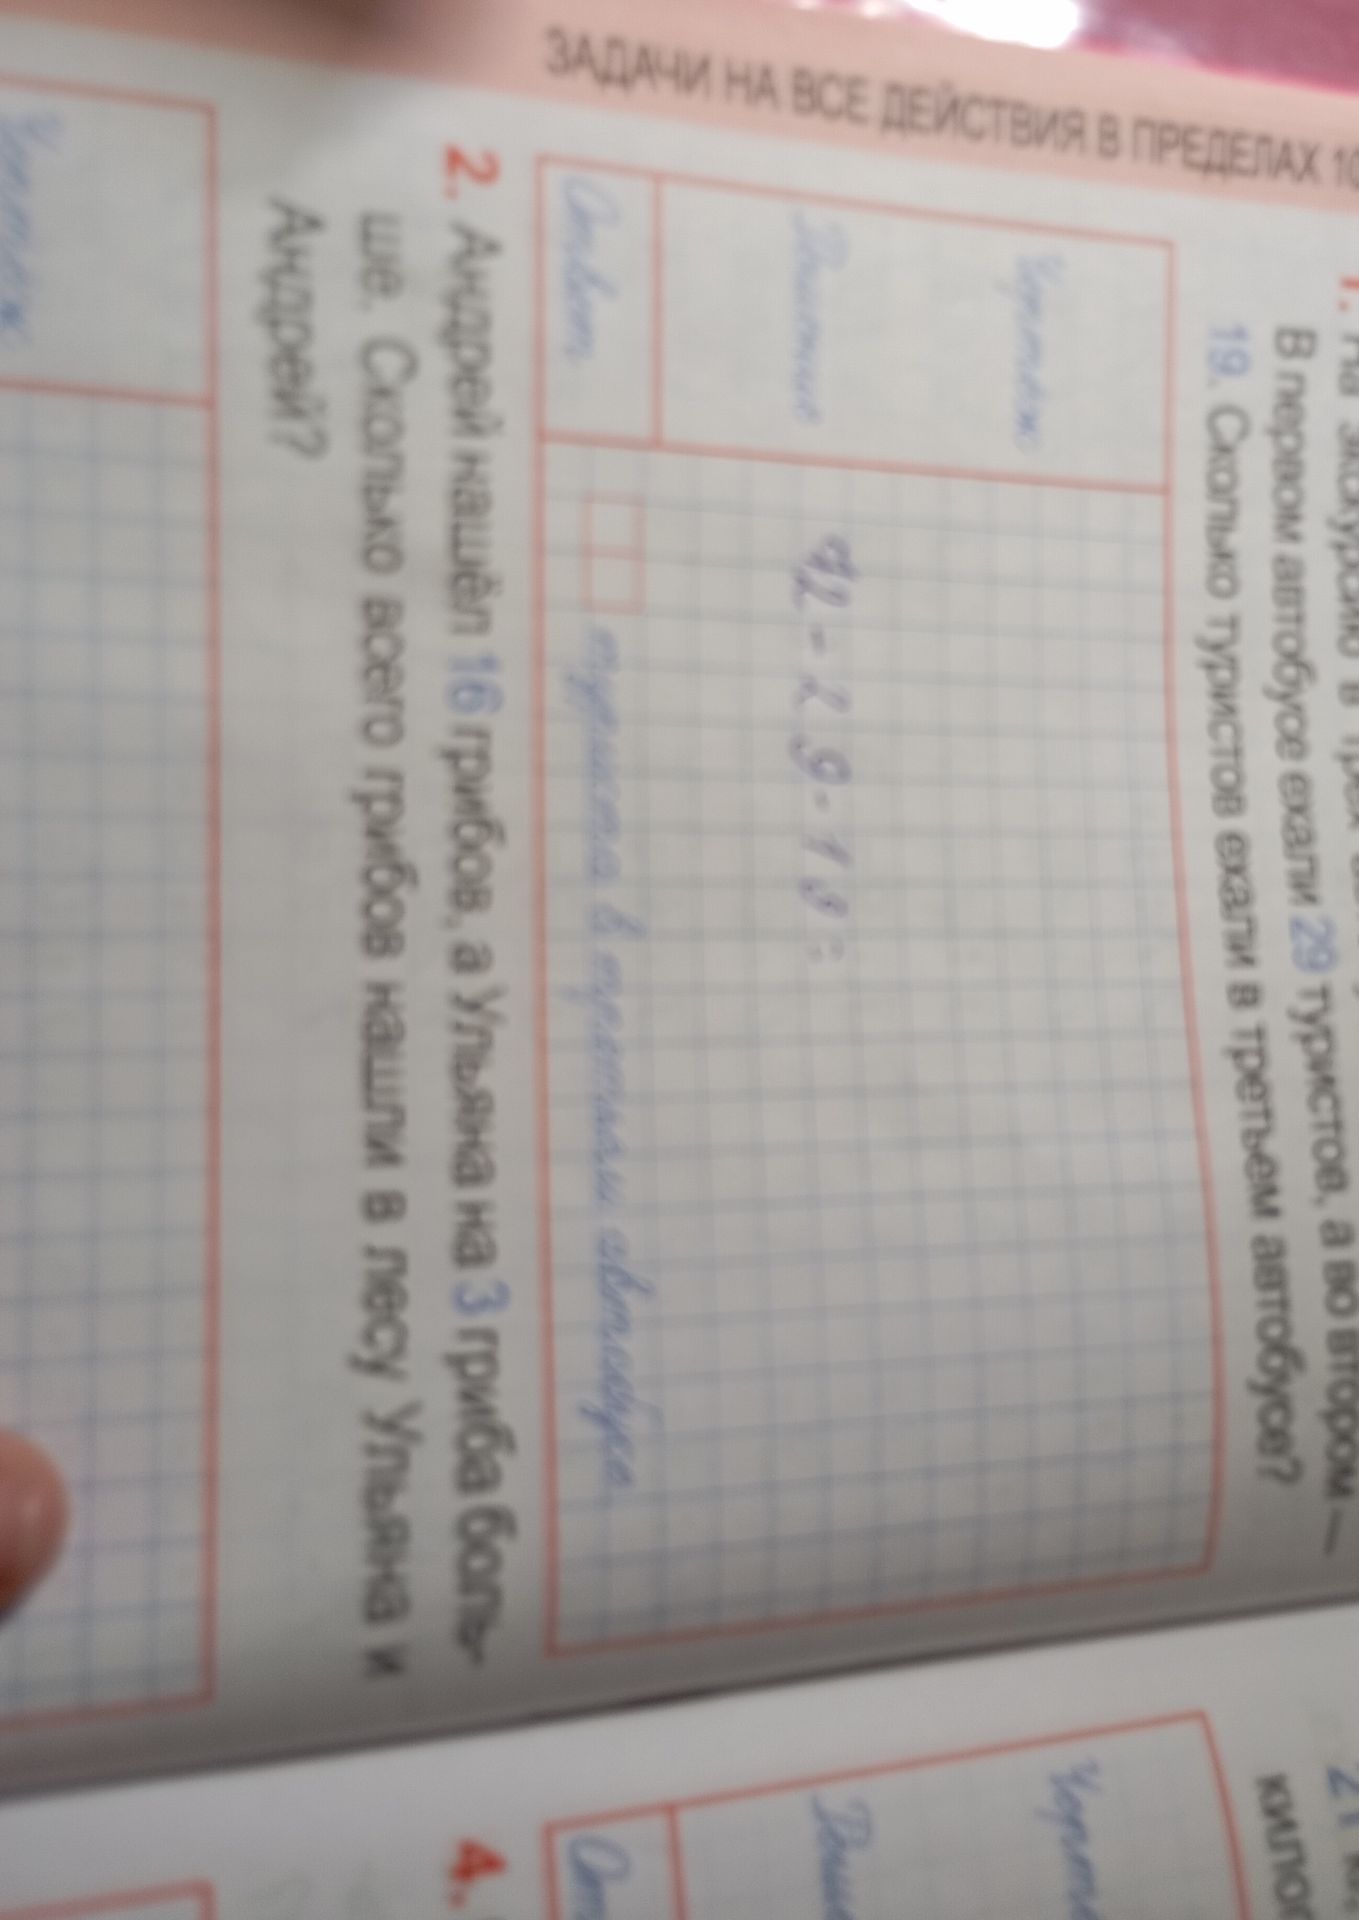 ЗАДАЧИ НА ВСЕ ДЕЙСТВИЯ В ПРЕДЕЛАХ 10
1. На экскурсию в трёх
В первом автобусе ехали 29 туристов, а во втором —
19. Сколько туристов ехали в третьем автобусе?
Чертёж
Решение
92-29-19=
Ответ
туриста в третьем автобусе.
2. Андрей нашёл 16 грибов, а Ульяна на 3 гриба боль-
ше. Сколько всего грибов нашли в лесу Ульяна и
Андрей?
Чертёж
21
килог
Черте
Реше
От
4.